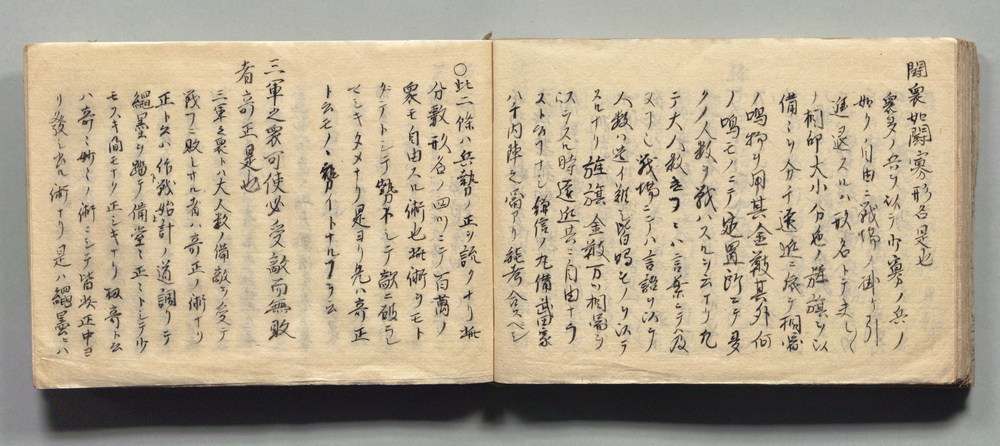 鬪衆如鬪寡形名是也
衆多ノ兵ヲ以テ少寡ノ兵ノ
如ク自由ニ戦場ノ御ケ引
進退スルハ形名トテ
ノ相印大小ノ色ノ旌旗ヲ以
備ミヲ分チ遠近ニ於テ相圖
ノ鳴物ヲ用其金鼓其外何
ノ鳴モノニテ定置所ニテ多
クノ人数ヲ戦ハスルヲ云ナリ凡
テ大人数云フハ言葉ニテハ及
ヌフシ戦場ニテハ言語ヲ以テ
人数ハ遣イ難シ皆鳴モノヲ以テ
スルナリ旌旗金鼓万ノ相圖ヲ
スル時遠近共ニ自由ナラ
スト云フナシ謙信ノ九備武田家
八千内陣之圖アリ能考合スベシ
〇此二條ハ兵勢ノ正ヲ説クナリ此
分數形名ノ四ツニテ百萬ノ
衆モ自由スル術也此術ヲモト
タテトシテ勢不シテ敵ニ破ラレ
マシキタメナリ是ヨリ先ハ奇正
ト云モノヽ勢イトナルフヲ云
三軍之衆可使必受敵而無敗
者奇正是也
三軍之衆トハ大人数ノ備敵ヲ受テ
戦フニ敗レサル者ハ奇正ノ術ナリ
正ト云ハ作戦始計ノ道調リテ
繩墨ヲ踏テ備堂ミ正ミトシテ少
モスキ間モナク正シキナリ扨奇ト云
ハ奇ミ妙ミノ術ニシテ皆此正中ヨ
リ發シ出ル術ナリ是ハ繩墨ニハ